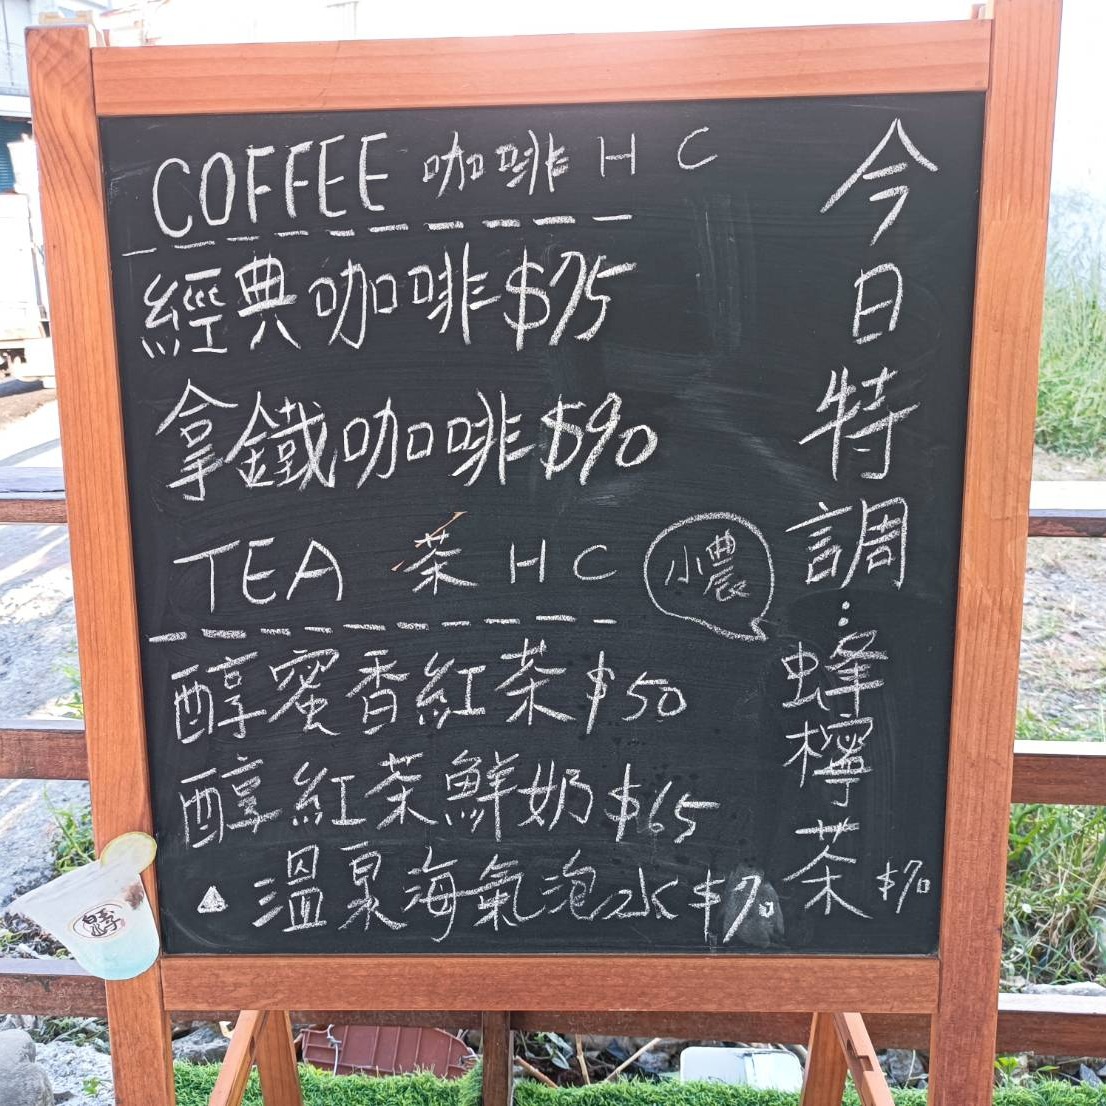 COFFEE 咖啡 H C
經典咖啡$75
拿鐵咖啡$90
TEA 茶 H C
小農
醇蜜香紅茶$50
醇紅茶鮮奶$65
溫泉海氣泡水$70
今日特調:蜂檸茶$70